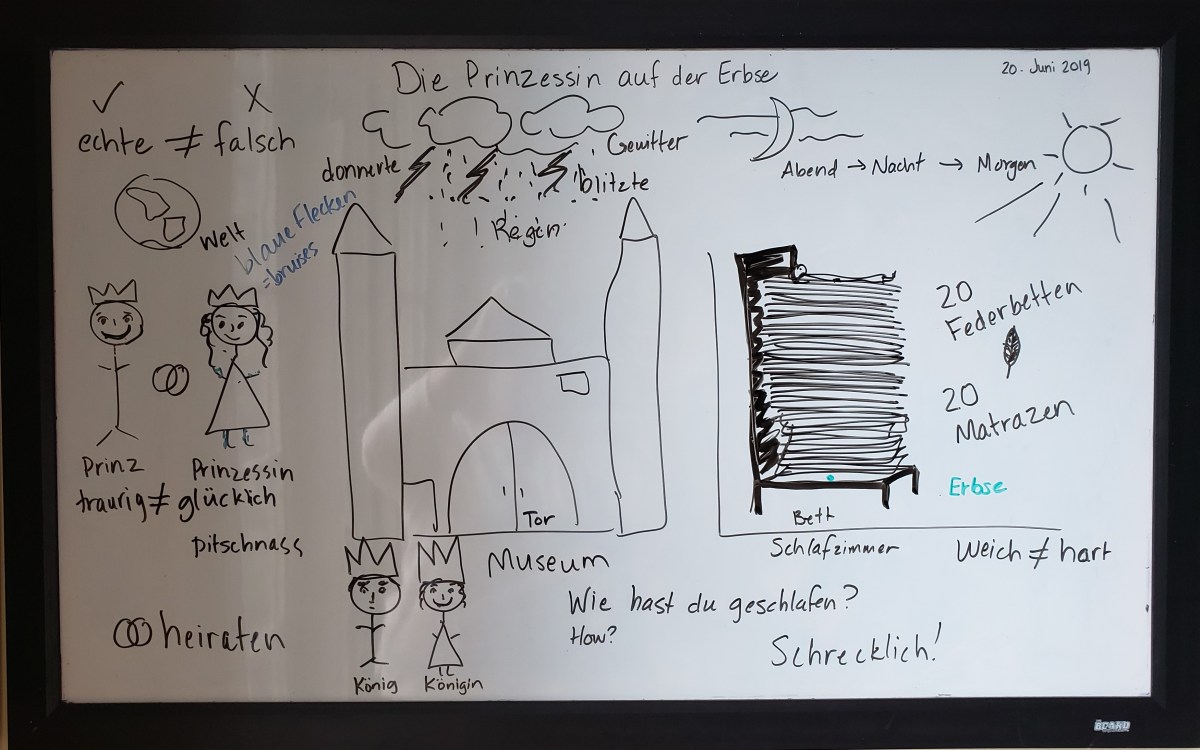 Die Prinzessin auf der Erbse
20. Juni 2019
echte ≠ falsch
donnerte
Gewitter
blitzte
Regen
Abend → Nacht → Morgen
Welt
blaue Flecken
=bruises
20
Federbetten
20
Matrazen
Erbse
Prinz
Prinzessin
traurig ≠ glücklich
pitschnass
Tor
Bett
Museum
Schlafzimmer
Weich ≠ hart
Wie hast du geschlafen?
How?
heiraten
Schrecklich!
König
Königin